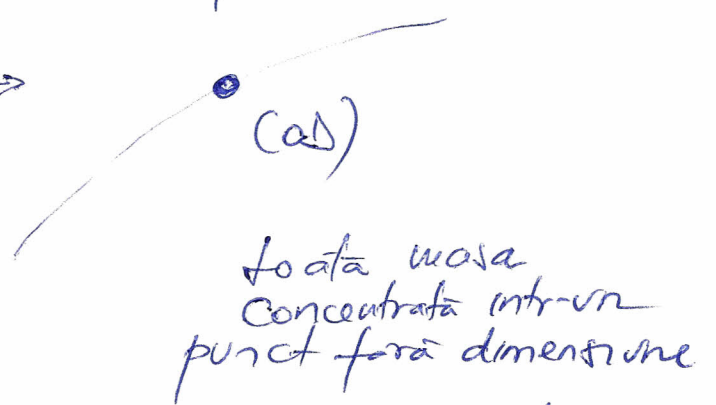 (aD)
toată masa
concentrată intr-un
punct fără dimensiune